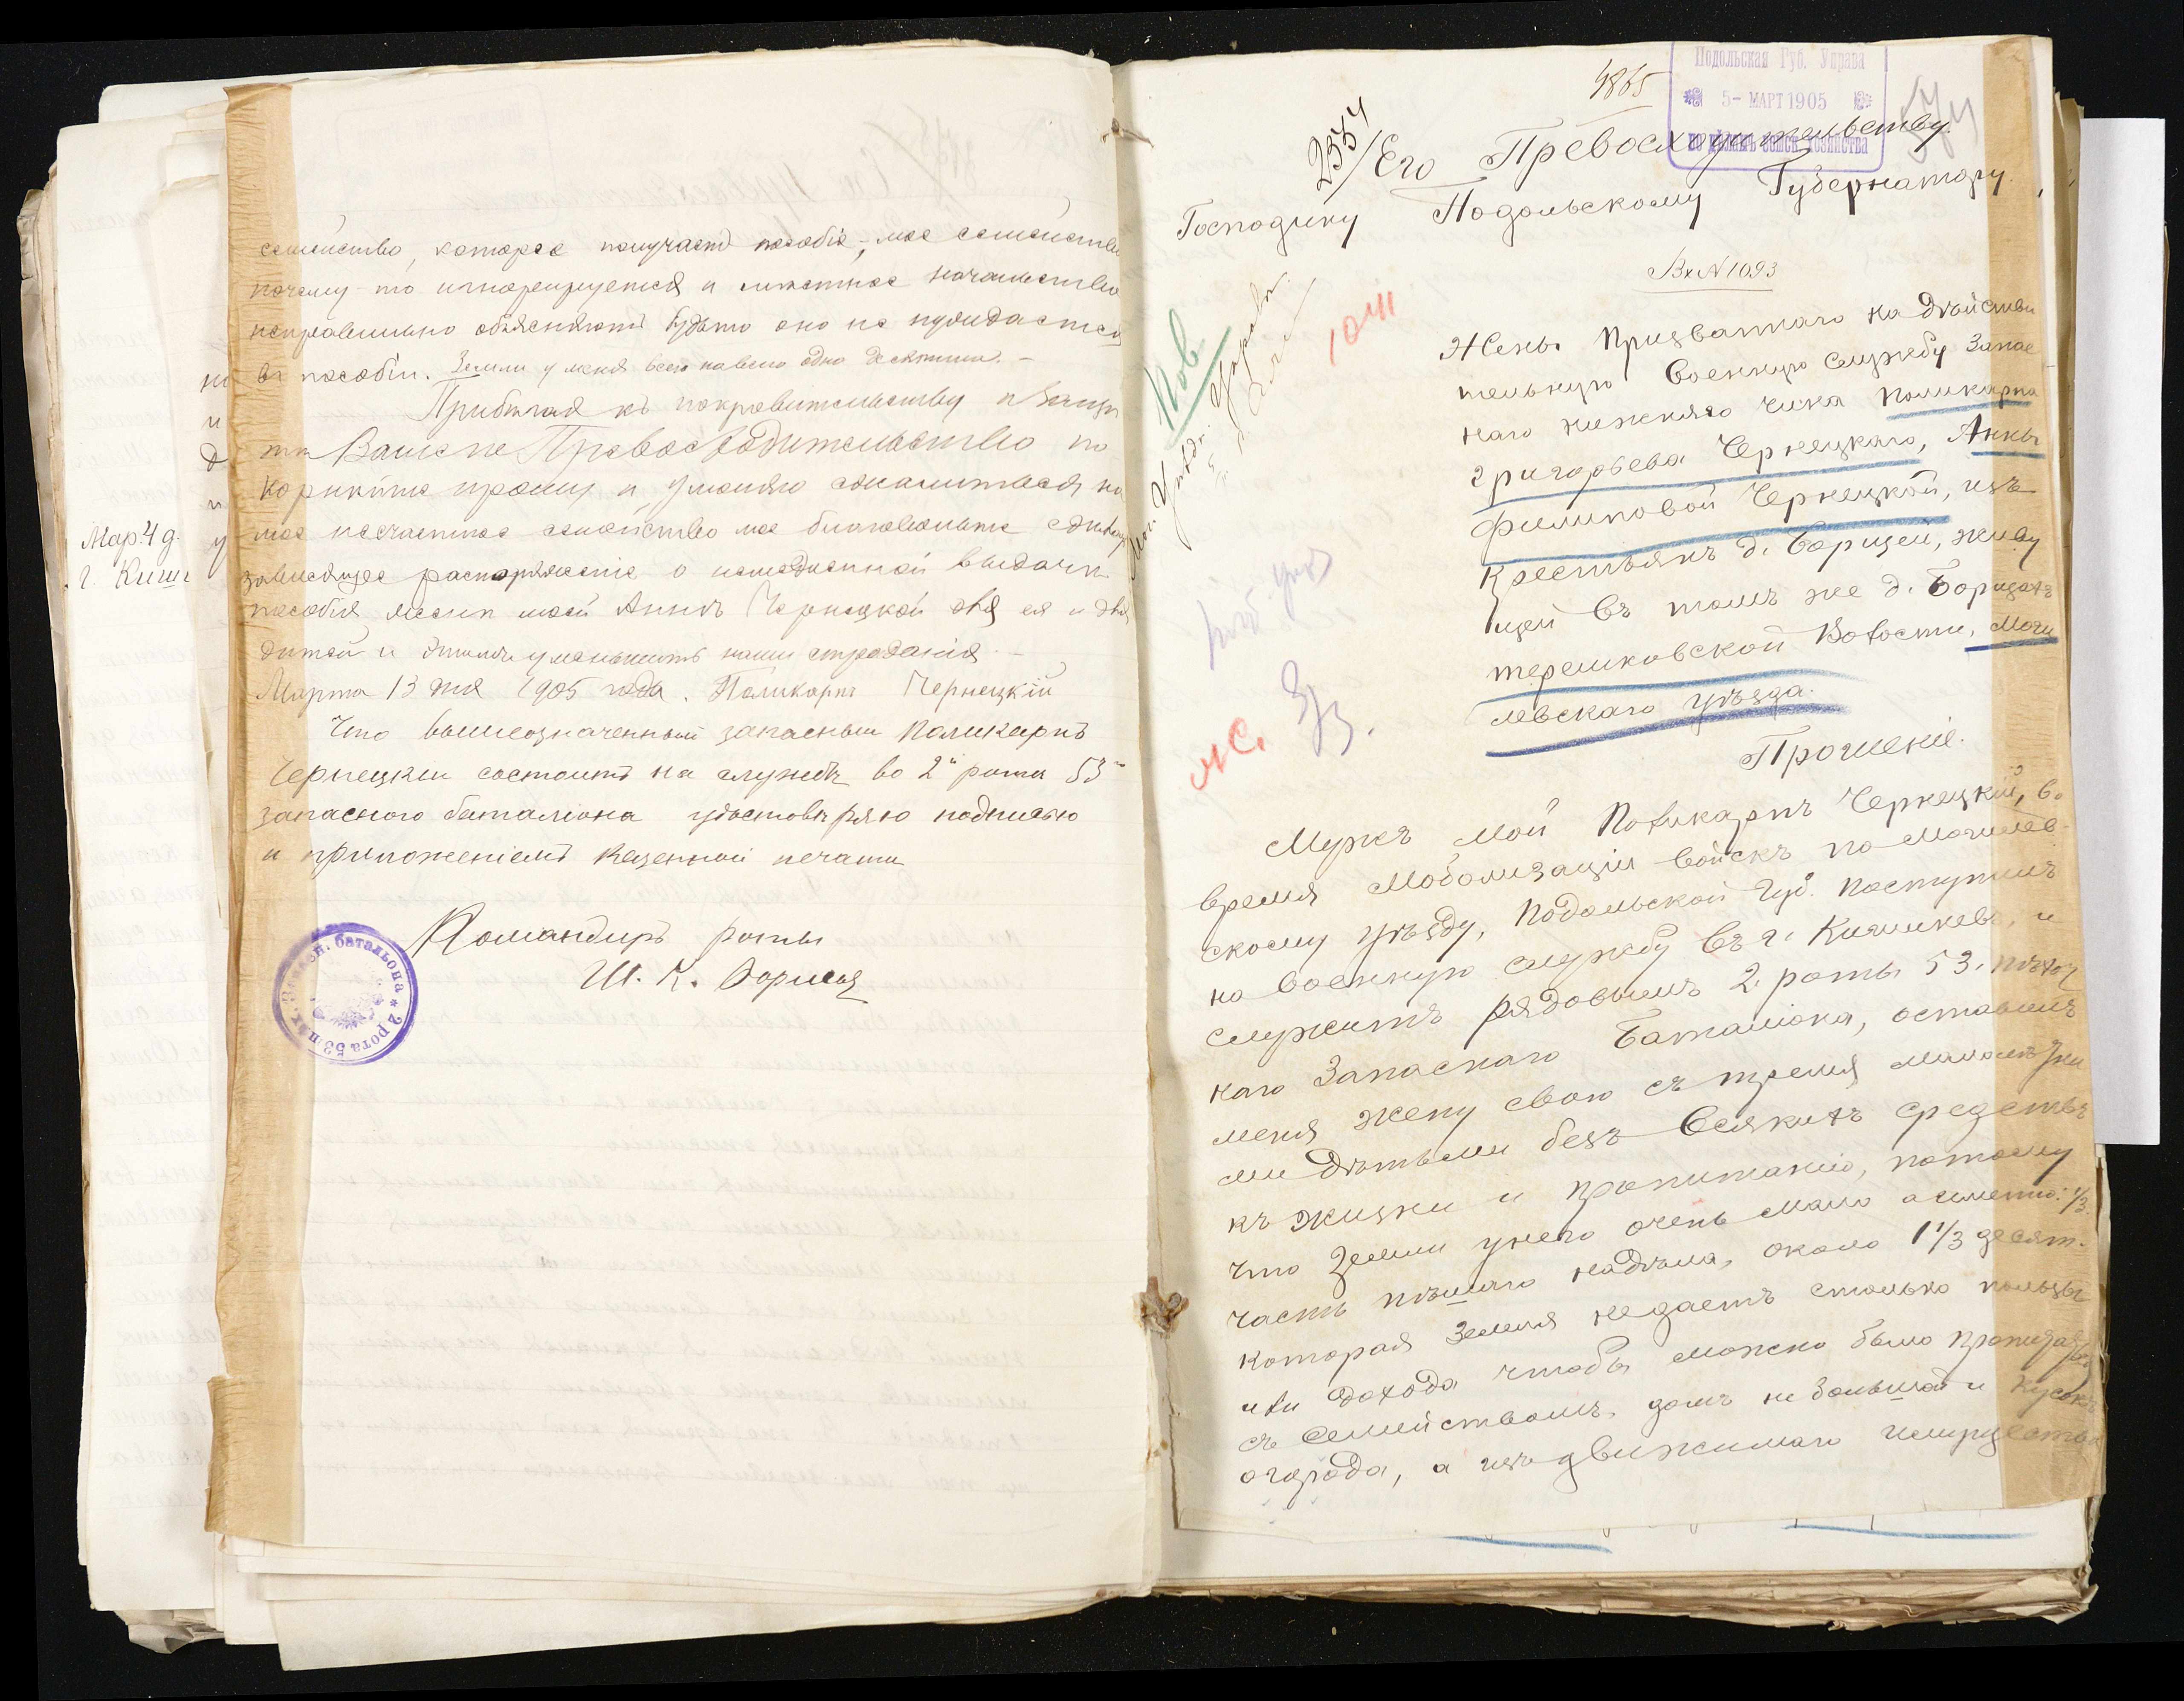 семейство, которое получает пособіе, мое семейство
почему-то игнорируется и местное начальство
неправильно объясняют будьто оно не нуждается
въ пособіи. Земли у меня всего навсего одна десятина. -
Прибегая къ покровительству и защи
ты Вашего Превосходительство по
корнейше прошу и умоляю сжалиться на
мое несчастное семейство мое благоволите сделать
зависящее распоряженіе о немедленной выдачи
пособія жены моей Анне Чернецкой для ея и для
детей и этимъ уменьшить наши страданія. -
Марта 13 дня 1905 года. Поликарпъ Чернецкій
Что вышеозначенный запасный Поликарпъ
Чернецкій состоитъ на службѣ во 2й роты 53го
запасного баталіона удостовѣряю подписью
и приложеніемъ казенной печати
Командиръ роты
Ш. К.
2 рота 53 пѣх. Запасн. батальона
Мар. 4 д.
г. Киши
4865
Подольская Губ. Управа
5 - МАРТ 1905
по дѣламъ земск. хозяйства
2334
Его Превосходительству
Господину Подольскому Губернатору.
Вх N 1093
Жены Призваннаго на дѣйстви
тельную Военную службу Запас
наго нижняго чина Поликарпа
Григорьева Чернецкаго, Анны
Филиповой Чернецкой, изъ
Крестьянъ д. Борщей, живу
щей въ томъ же д. Борщахъ
терешковской Волости, Моги
левскаго уѣзда.
Прошеніе.
Мужъ мой Поликарпъ Чернецкій, во
время Моболизаціи войскъ по Могилев-
скому уѣзду, Подольской Губ. Поступилъ
на военную службу въ г. Кишиневъ, и
служитъ рядовымъ 2. роты 53. пѣхот
наго Запаснаго Баталіона, оставилъ
меня жену свою съ тремя малолѣтни
ми Дѣтьми безъ Всякихъ средствъ
къ жизни и пропитанію, потому
что Земли унего очень мало а именно: 1/3
часть пѣшаго надѣла, около 1 1/3 десят.
которая Земля недаетъ столько пользы
или дохода чтобы можно было
съ Семействомъ, домъ не большой и Кусокъ
огорода, а изъ движимаго имущества